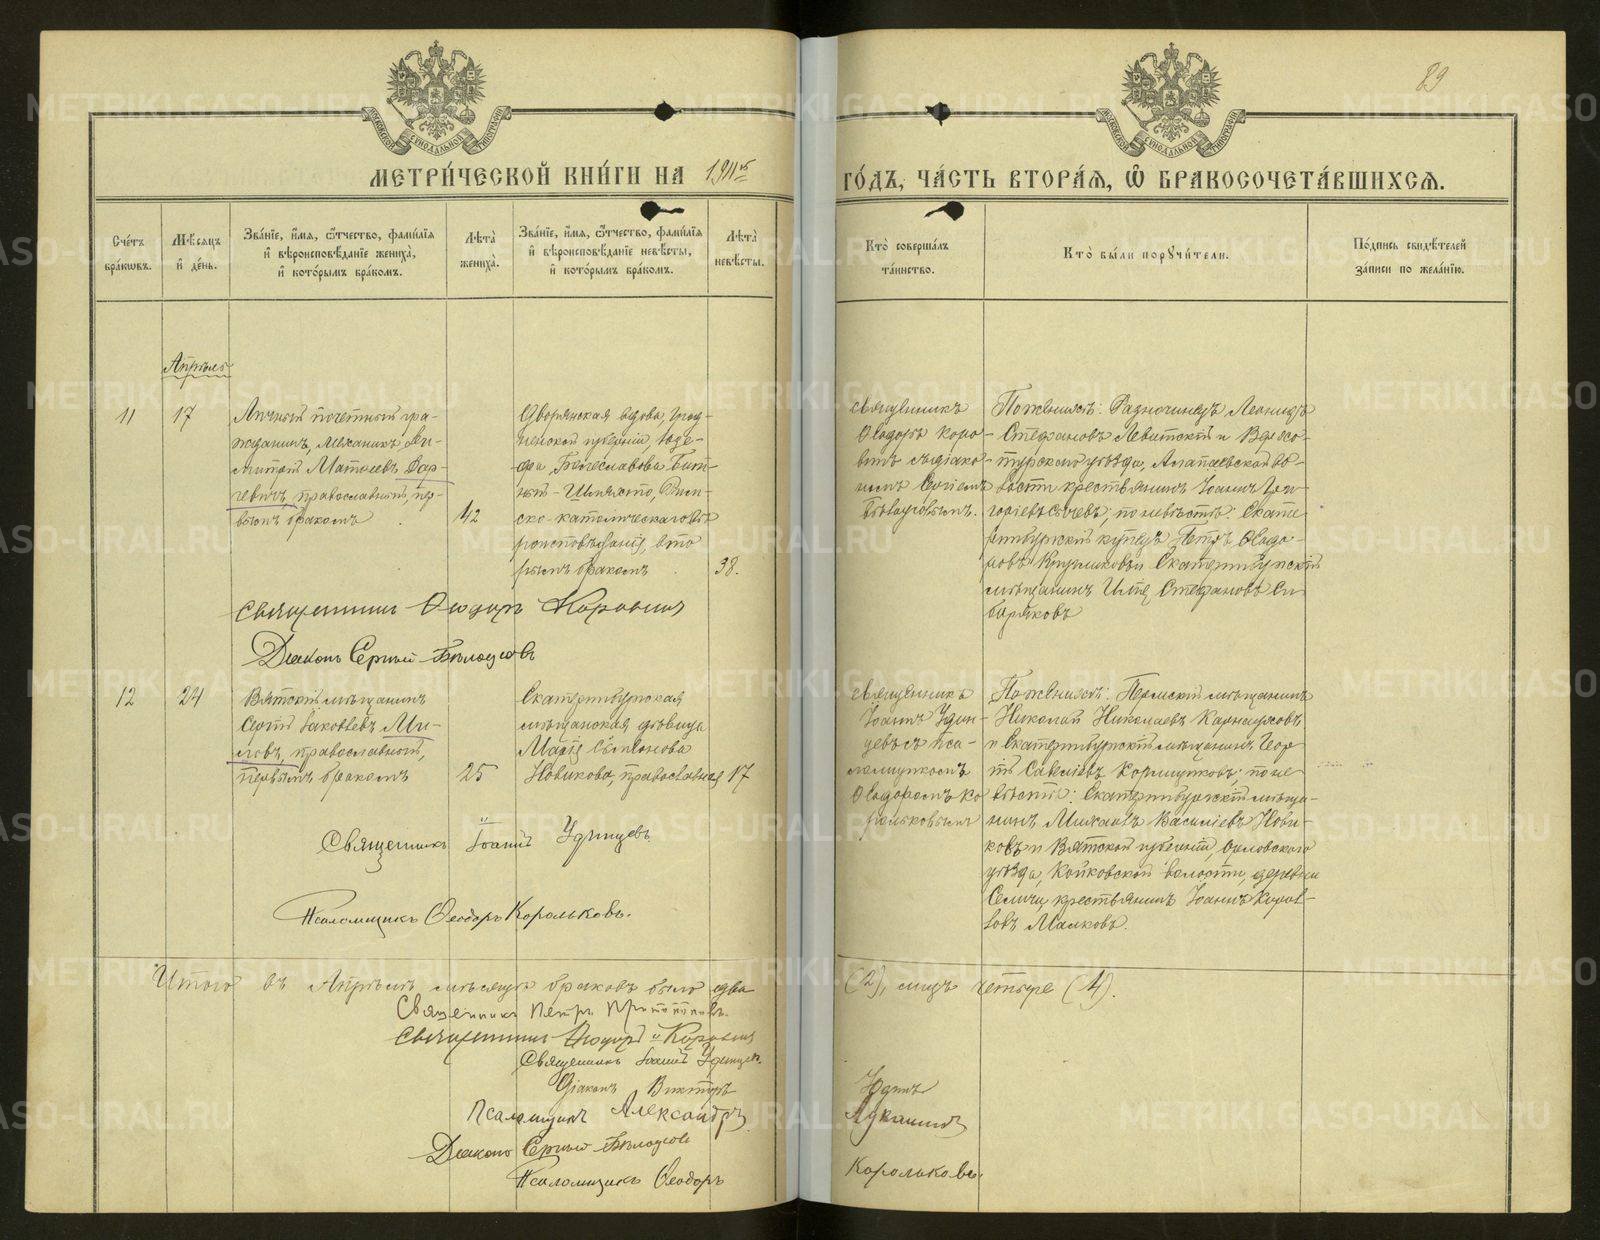 89
МЕТРИ́ЧЕСКОЙ КНИ́ГИ НА 1911й ГО́ДЪ, ЧА́СТЬ ВТОРА́Я, Ѿ БРАКОСОЧЕТА́ВШИХСЯ.
Сче́тъ бра́кѡвъ.
Мѣ́сяцъ и҆ де́нь.
Зва́нїе, и҆́мя, ѻ҆́тчество, фами́лїя и҆ вѣроисповѣ́данїе жениха̀, и҆ кото́рымъ бра́комъ.
Лѣ́та жениха̀.
Зва́нїе, и҆́мя, ѻ҆́тчество, фами́лїя и҆ вѣроисповѣ́данїе невѣ́сты, и҆ кото́рымъ бра́комъ.
Лѣ́та невѣ́сты.
Кто̀ соверша́лъ та́инство.
Кто̀ бы́ли поручи́тели.
По́дпись свидѣ́телей за́писи по жела́нїю.
Апрѣль
11
17
Личный почетный гра-
жданинъ, механикъ Ди-
митрій Матѳеевъ
православный, пер-
вымъ бракомъ
42
Дворянская вдова, Грод-
ненской губерніи, Юзе-
фа Болеславова
Рим-
ско-католическаго вѣ
роисповѣданія, вто
рымъ бракомъ
38.
священникъ
Ѳеодоръ Коро-
винъ съ діако-
номъ Сергіемъ
Бѣлоусовымъ.
По женихѣ: Разночинецъ Леонидъ
Стефановъ Левитскій и Верхо-
турскаго уѣзда, Алапаевской во-
лости крестьянинъ Іоаннъ Гри-
горьевъ по невѣстѣ: Екате
ринбургскій купецъ Петръ Ѳеодо-
ровъ и Екатеринбургскій
мѣщанинъ Илія Стефановъ
Священникъ Ѳеодоръ Коровинъ
Діаконъ Сергій Бѣлоусовъ
12
24
Вятскій мѣщанинъ
Сергій Іаковлевъ Ми-
ловъ, православный,
первымъ бракомъ
25
Екатеринбургская
мѣщанская дѣвица
Марія Симеонова
Новикова, православная
17
священникъ
Іоаннъ Удин-
цевъ съ пса-
ломщикомъ
Ѳеодоромъ Ко
рольковымъ
По женихѣ: Пермскій мѣщанинъ
Николай Николаевъ Карнауховъ
и Екатеринбургскій мѣщанинъ Геор
гій Савельевъ Кормщиковъ; по не
вѣстѣ: Екатеринбургскій мѣща-
нинъ Михаилъ Василіевъ Нови-
ковъ и Вятской губерніи, Орловскаго
уѣзда, Койковской волости, деревни
крестьянинъ Іоаннъ
Малковъ.
Священникъ Іоаннъ Удинцевъ.
Псаломщикъ Ѳеодоръ Корольковъ.
Итого въ Апрѣлѣ мѣсяцѣ браковъ было два (2), лицъ четыре (4).
Священникъ Петръ
Священникъ Ѳеодоръ Коровинъ
Священникъ Іоаннъ Удинцевъ.
Діаконъ Викторъ Удинъ
Псаломщикъ Александръ Лукашинъ
Діаконъ Сергій Бѣлоусовъ
Псаломщикъ Ѳеодоръ Корольковъ.
METRIKI.GASO-URAL.RU